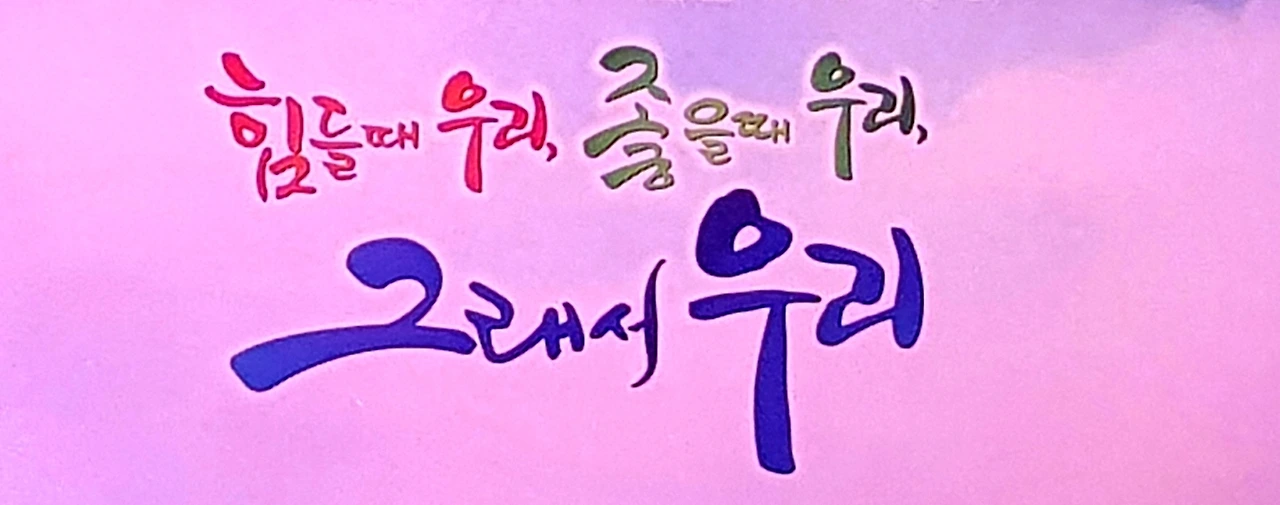 힘들때 우리, 좋을때 우리,
그래서 우리